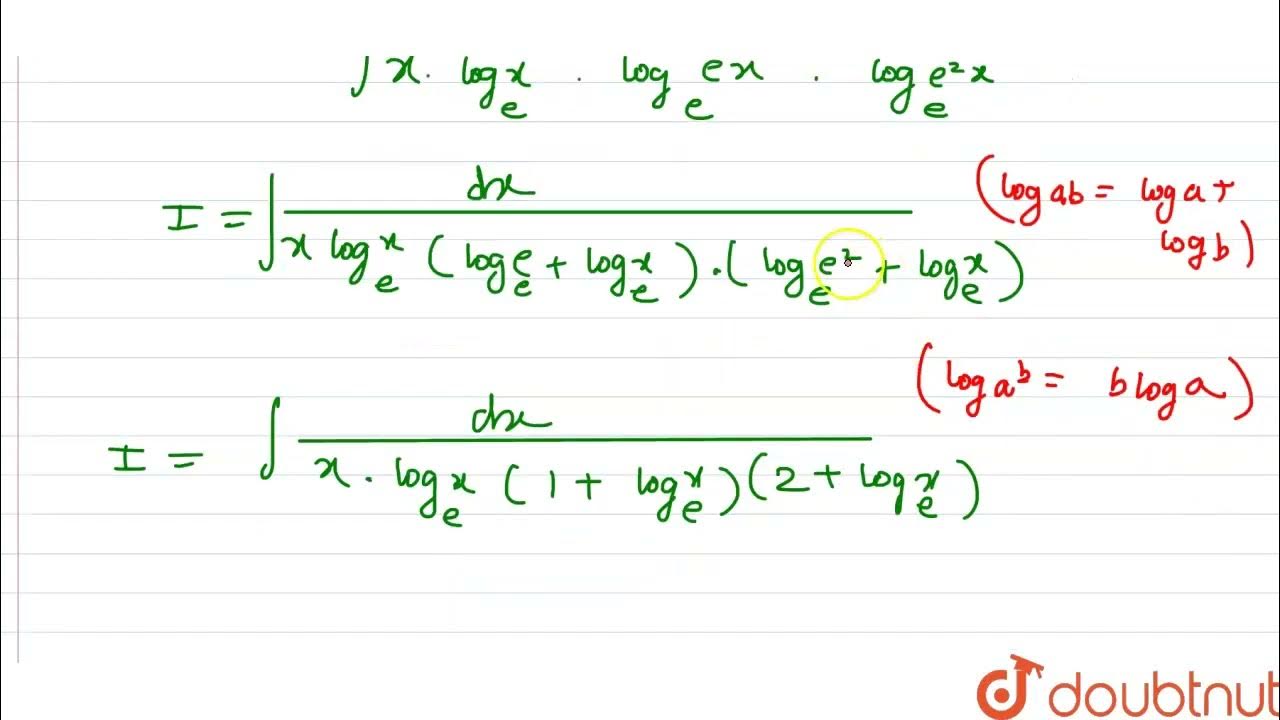 ∫ x · log_e x · log_e ex · log_e e²x
I = ∫ dx / x log_e x (log_e e + log_e x) · (log_e e² + log_e x)
(log ab = log a +
log b)
(log a^b = b log a)
I = ∫ dx / x · log_e x (1 + log_e x)(2 + log_e x)
doubtnut